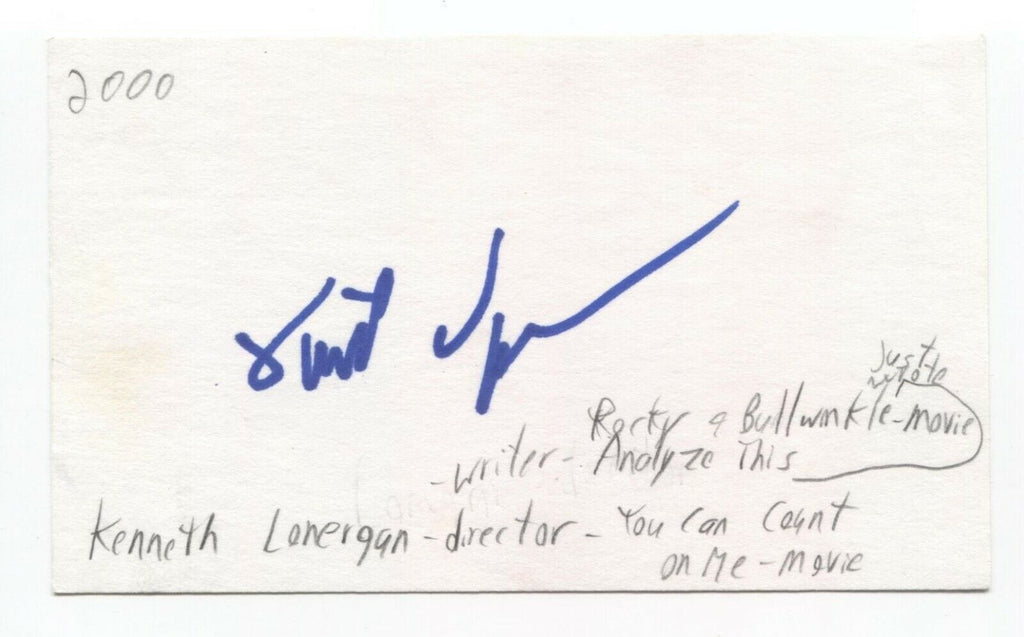 2000
Just
wrote
Rocky & Bullwinkle-movie
-writer- Analyze This
Kenneth Lonergan-director- You Can Count
on Me-movie